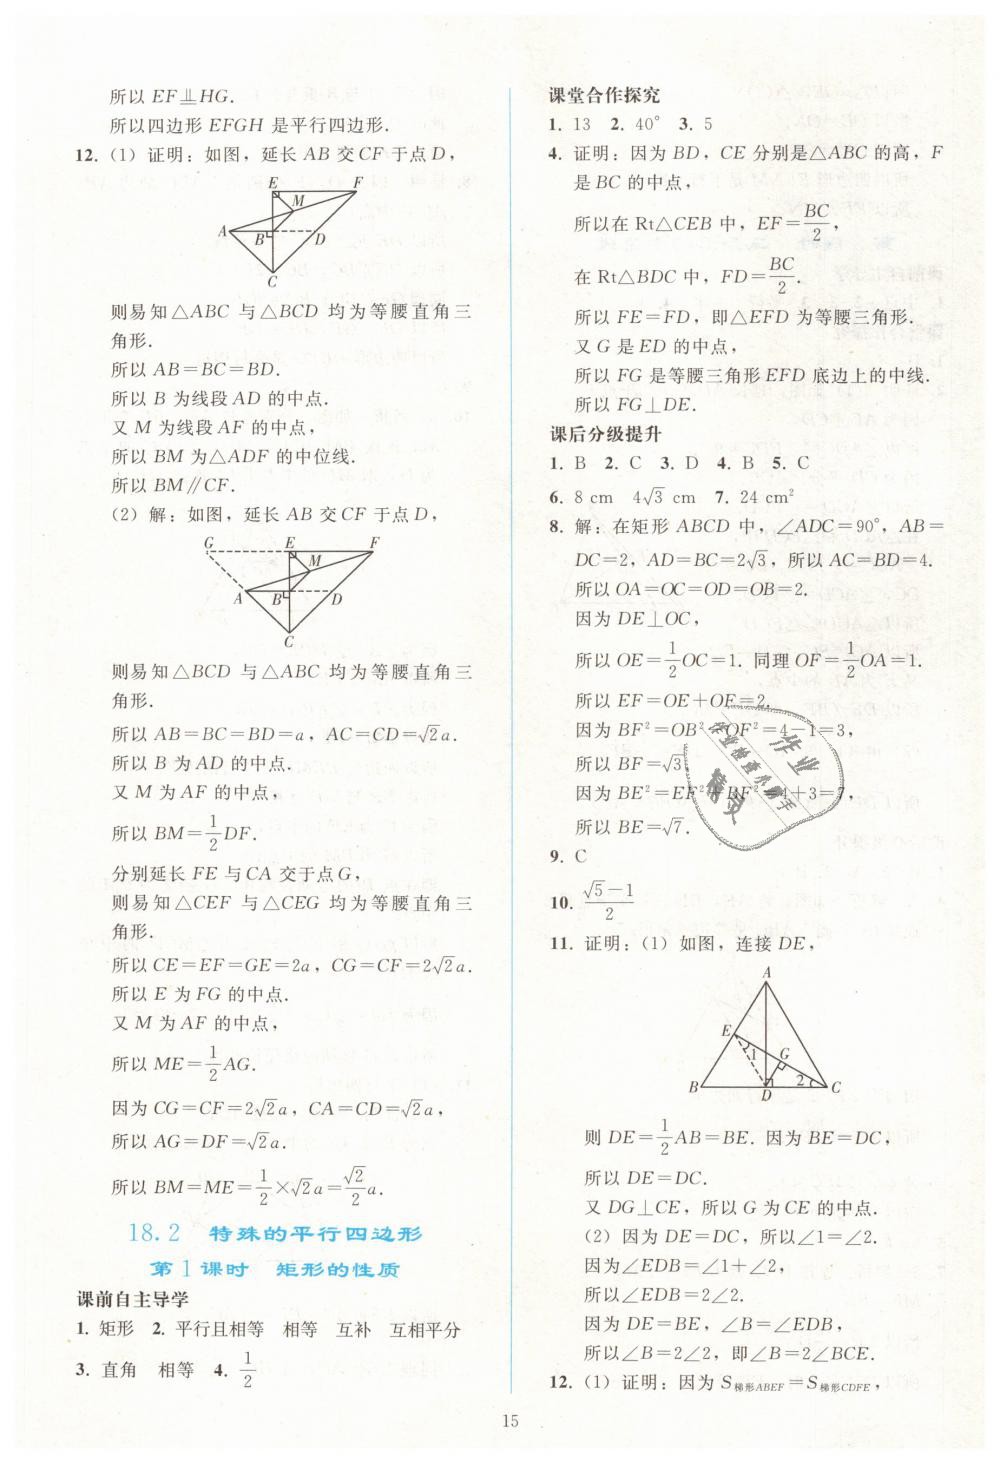 所以 EF⊥∥HG.
所以四边形 EFGH 是平行四边形.
12. (1) 证明：如图，延长 AB 交 CF 于点 D，
E F
M
A B D
C
则易知△ABC 与△BCD 均为等腰直角三
角形.
所以 AB=BC=BD.
所以 B 为线段 AD 的中点.
又 M 为线段 AF 的中点，
所以 BM 为△ADF 的中位线.
所以 BM∥CF.
(2) 解：如图，延长 AB 交 CF 于点 D，
G E F
M
A B D
C
则易知△BCD 与△ABC 均为等腰直角三
角形.
所以 AB=BC=BD=a，AC=CD=√2a.
所以 B 为 AD 的中点.
又 M 为 AF 的中点，
所以 BM=1/2DF.
分别延长 FE 与 CA 交于点 G，
则易知△CEF 与△CEG 均为等腰直角三
角形.
所以 CE=EF=GE=2a，CG=CF=2√2a.
所以 E 为 FG 的中点.
又 M 为 AF 的中点，
所以 ME=1/2AG.
因为 CG=CF=2√2a，CA=CD=√2a，
所以 AG=DF=√2a.
所以 BM=ME=1/2×√2a=√2/2a.
18.2 特殊的平行四边形
第 1 课时 矩形的性质
课前自主导学
1. 矩形 2. 平行且相等 相等 互补 互相平分
3. 直角 相等 4. 1/2
课堂合作探究
1. 13 2. 40° 3. 5
4. 证明：因为 BD，CE 分别是△ABC 的高，F
是 BC 的中点，
所以在 Rt△CEB 中，EF=BC/2，
在 Rt△BDC 中，FD=BC/2.
所以 FE=FD，即△EFD 为等腰三角形.
又 G 是 ED 的中点，
所以 FG 是等腰三角形 EFD 底边上的中线.
所以 FG⊥DE.
课后分级提升
1. B 2. C 3. D 4. B 5. C
6. 8 cm 4√3 cm 7. 24 cm²
8. 解：在矩形 ABCD 中，∠ADC=90°，AB=
DC=2，AD=BC=2√3，所以 AC=BD=4.
所以 OA=OC=OD=OB=2.
因为 DE⊥OC，
所以 OE=1/2OC=1. 同理 OF=1/2OA=1.
所以 EF=OE+OF=2.
因为 BF²=OB²-OF²=4-1=3，
所以 BF=√3.
因为 BE²=EF²+BF²=4+3=7，
所以 BE=√7.
作业
作业检查小助手
精灵
9. C
10. (√5-1)/2
11. 证明：(1) 如图，连接 DE，
A
E
1 G
B D 2 C
则 DE=1/2AB=BE. 因为 BE=DC，
所以 DE=DC.
又 DG⊥CE，所以 G 为 CE 的中点.
(2) 因为 DE=DC，所以∠1=∠2.
因为∠EDB=∠1+∠2，
所以∠EDB=2∠2.
因为 DE=BE，∠B=∠EDB，
所以∠B=2∠2，即∠B=2∠BCE.
12. (1) 证明：因为 S梯形ABEF=S梯形CDFE，
15